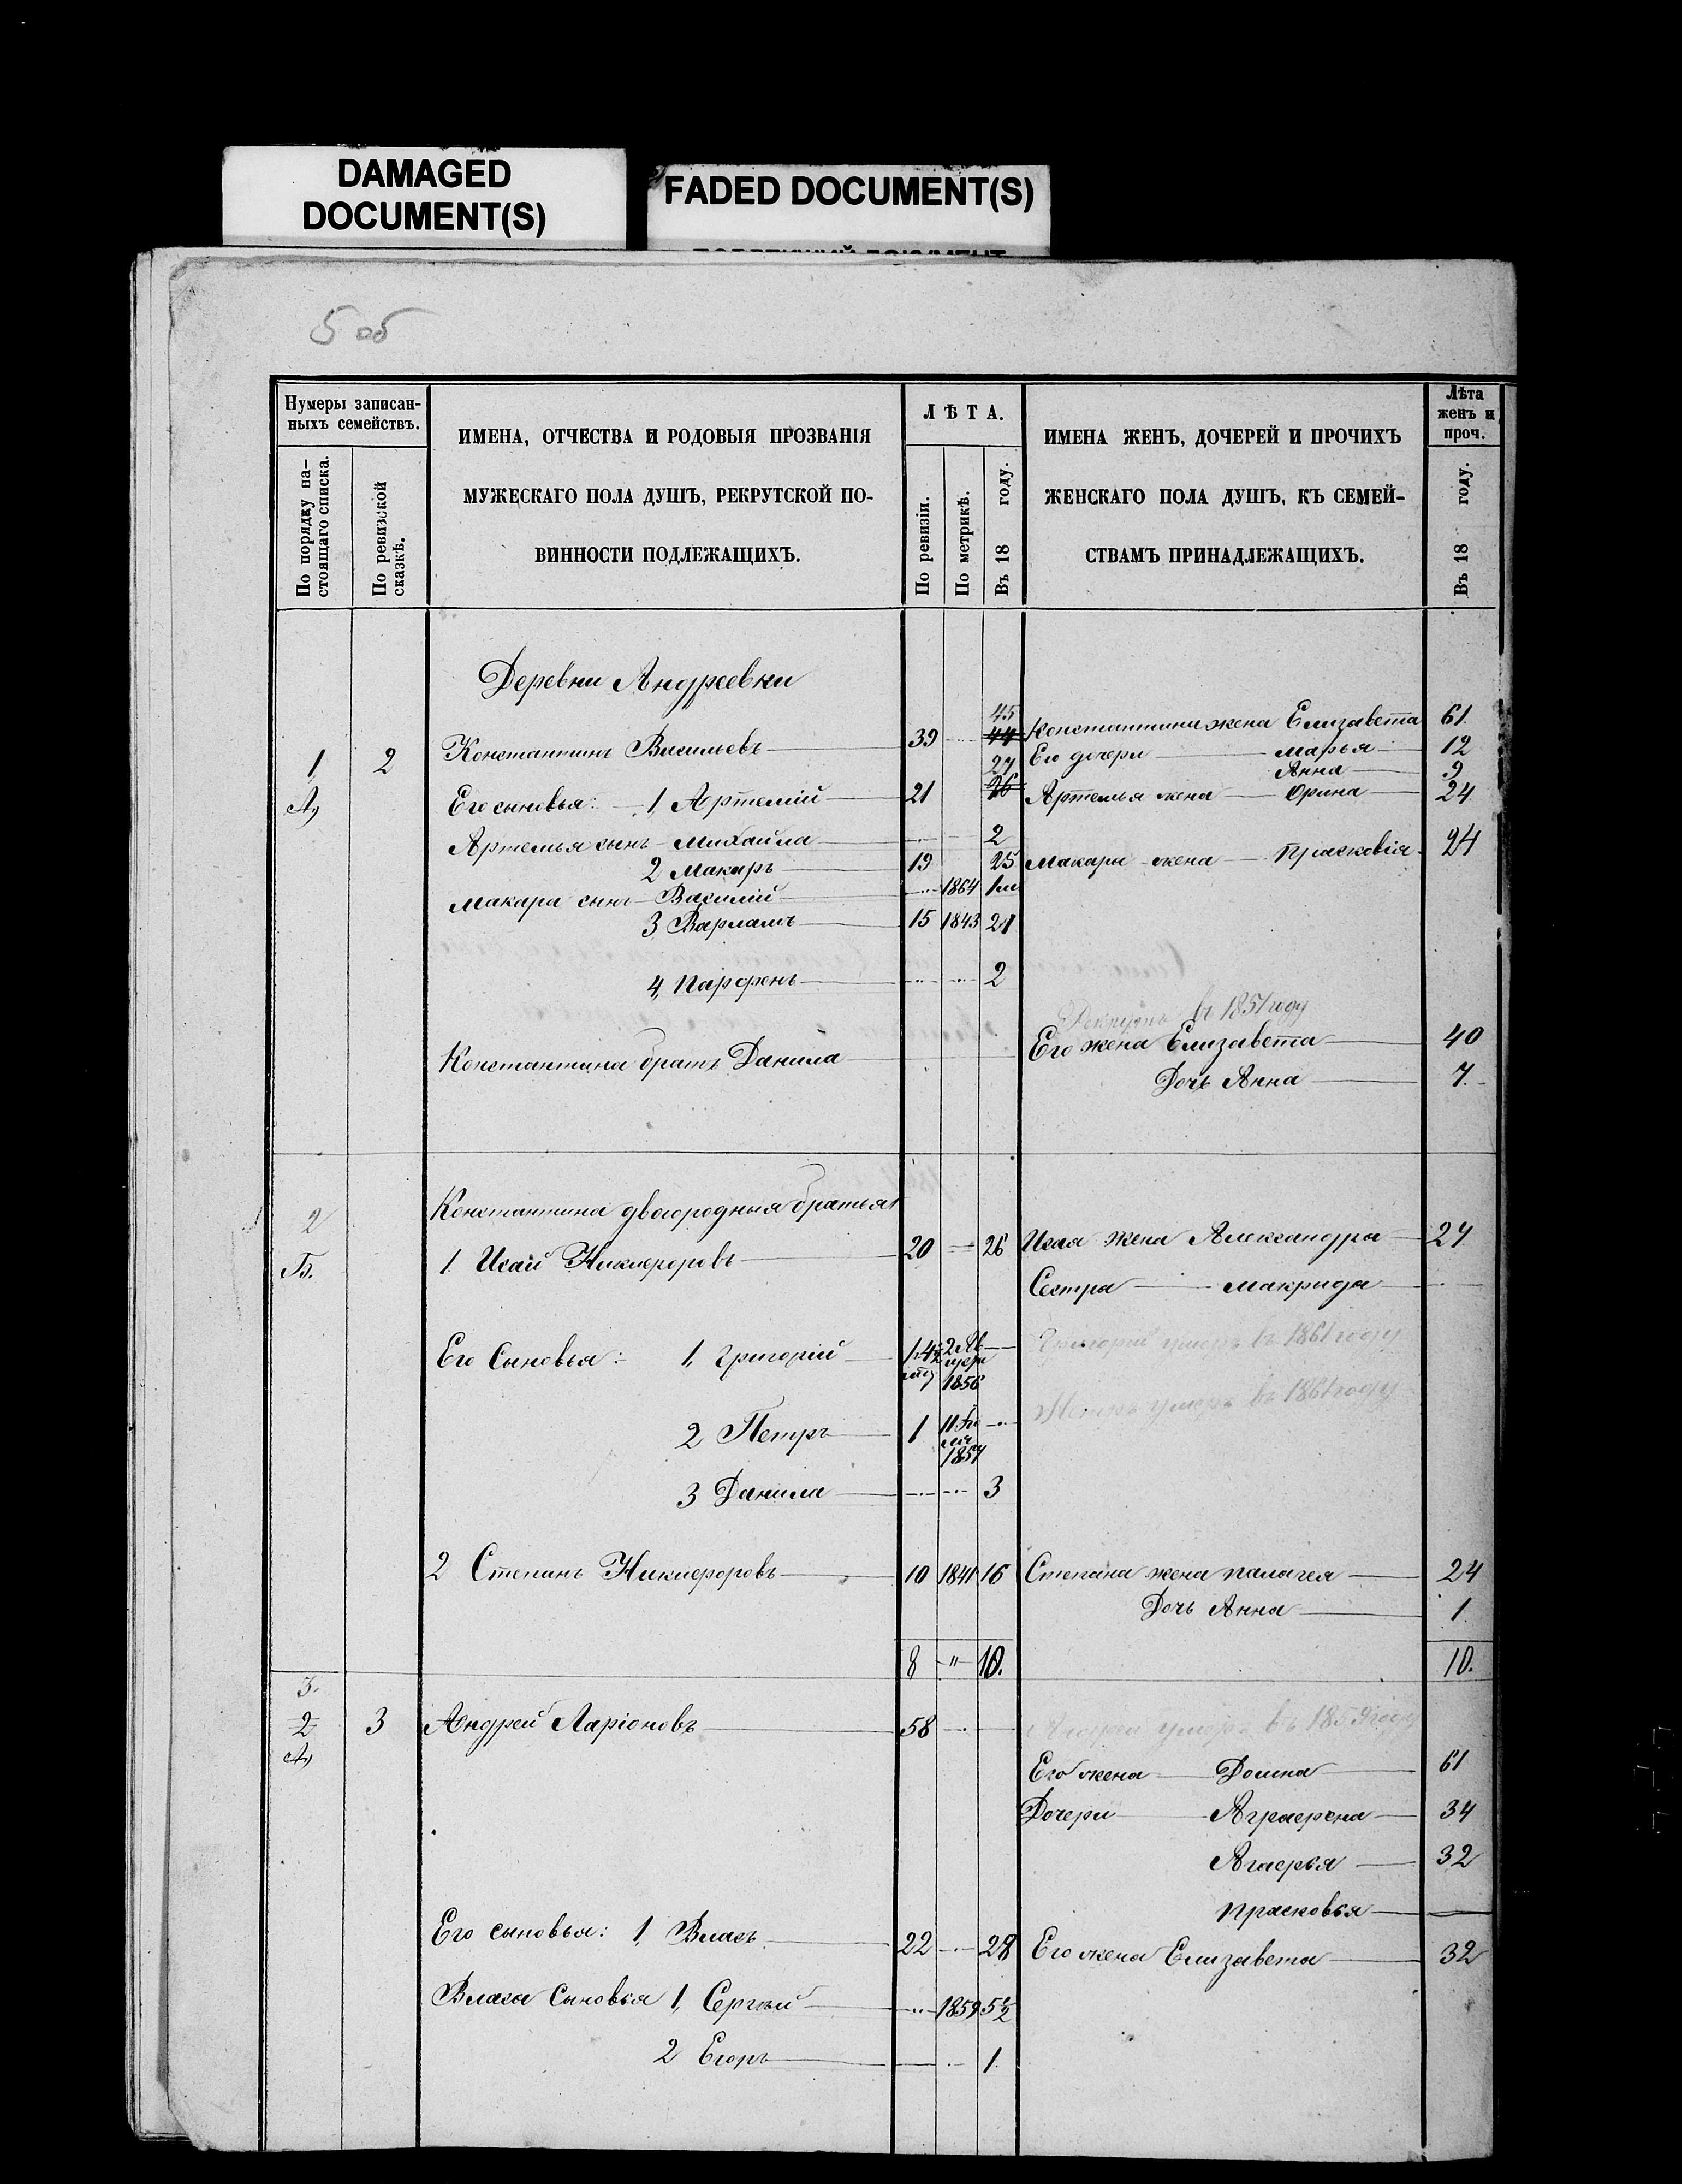 DAMAGED
DOCUMENT(S)
FADED DOCUMENT(S)
5 об
Нумеры записан-
ныхъ семействъ.
По порядку на-
стоящаго списка.
По ревизской
сказкѣ.
ИМЕНА, ОТЧЕСТВА И РОДОВЫЯ ПРОЗВАНІЯ
МУЖЕСКАГО ПОЛА ДУШЪ, РЕКРУТСКОЙ ПО-
ВИННОСТИ ПОДЛЕЖАЩИХЪ.
ЛѢТА.
По ревизіи.
По метрикѣ.
Въ 18 году.
ИМЕНА ЖЕНЪ, ДОЧЕРЕЙ И ПРОЧИХЪ
ЖЕНСКАГО ПОЛА ДУШЪ, КЪ СЕМЕЙ-
СТВАМЪ ПРИНАДЛЕЖАЩИХЪ.
Лѣта
женъ и
проч.
Въ 18 году.
Деревни Андреевки
1 2 Константинъ Васильевъ 39 45 44 Константина жена Елизавета 61
Его дочери Марья 12
Анна 9
А, Его сыновья: 1, Артемій 21 27 26 Артемья жена Орина 24
Артемья сынъ Михайла 2
2 Макаръ 19 25 Макара жена Прасковія 24
Макара сынъ Василій 1864 1
3 Варламъ 15 1843 21
4, Парфенъ 2
въ 1851 году
Константина братъ Данила Его жена Елизавета 40
Дочь Анна 7
2 Константина двоюродныя братья
Б. 1. Исай Никифоровъ 20 26 Исая жена Александра 27
Сестра Макрида
Его Сыновья: 1, Григорій 2 1856 Григорій умеръ въ 1861 году
2 Петръ 1 11 1857 Петръ умеръ въ 1861 году
3 Данила 3
2 Степанъ Никифоровъ 10 1841 16 Степана жена Палагея 24
Дочь Анна 1
8 " 10. 10.
3.
2 3 Андрей Ларіоновъ 58 Андрей умеръ въ 1859 году
А, Его жена Домна 61
Дочери Аграфена 34
Агафья 32
Прасковья
Его сыновья: 1, Власъ 22 28 Его жена Елизавета 32
Власа Сыновья 1, Сергѣй 1859 5½
2 Егоръ 1.